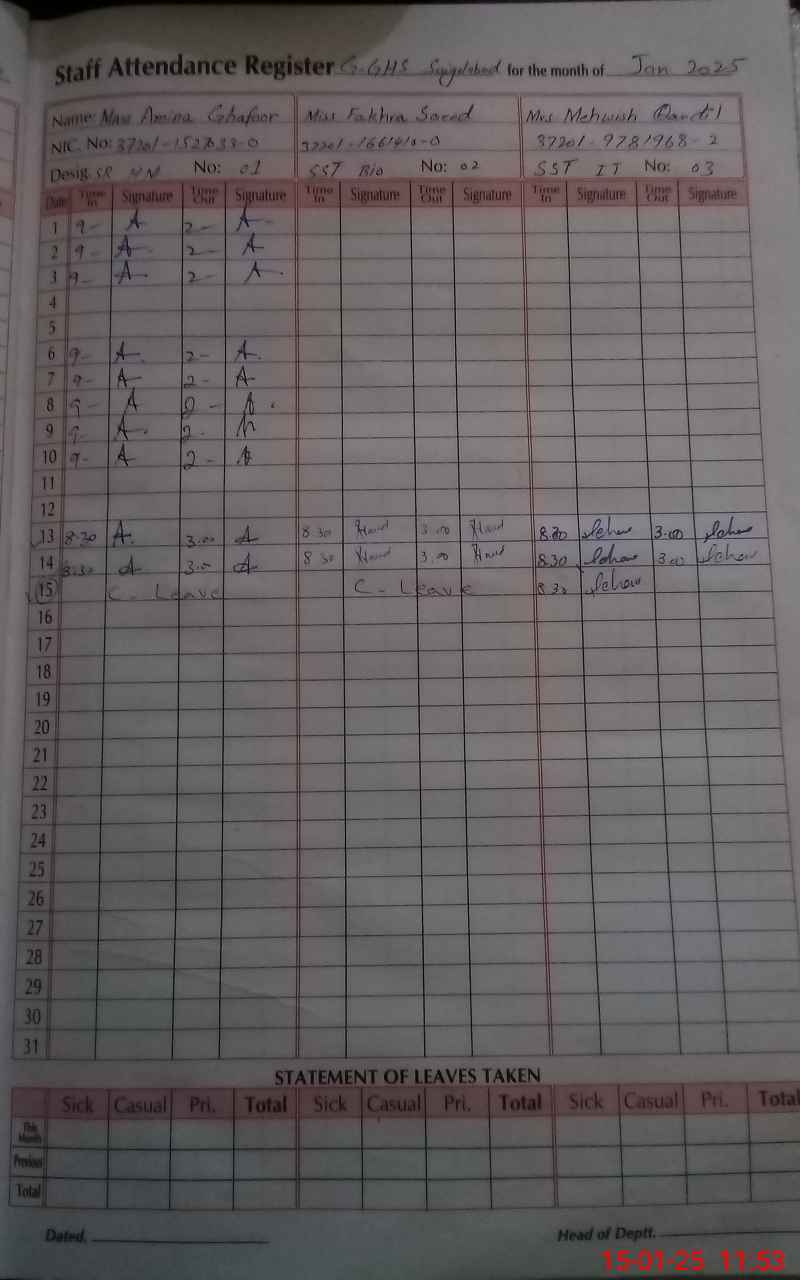 Staff Attendance Register G-GHS for the month of Jan 2025
Name: Miss Amina Ghafoor Miss Fakhra Saeed Mrs Mehwish
NIC. No: 37201-1527033-0 37201-1661410-0 37201-9781968-2
Desig. No: 01 SST Bio No: 02 SST IT No: 03
Date Time In Signature Time Out Signature Time In Signature Time Out Signature Time In Signature Time Out Signature
1 9- A 2- A
2 9- A 2- A
3 9- A 2- A
4
5
6 9- A 2- A
7 9- A 2- A
8 9- A 2- A
9 9- A 2- A
10 9- A 2- A
11
12
13 8.30 A 3.00 A 8.30 3.00 8.30 3.00
14 8.30 A 3.00 A 8.30 3.00 8.30 3.00
15 C-Leave C-Leave 8.30
16
17
18
19
20
21
22
23
24
25
26
27
28
29
30
31
STATEMENT OF LEAVES TAKEN
Sick Casual Pri. Total Sick Casual Pri. Total Sick Casual Pri. Total
This Month
Previous
Total
Dated. Head of Deptt.
15-01-25 11:53